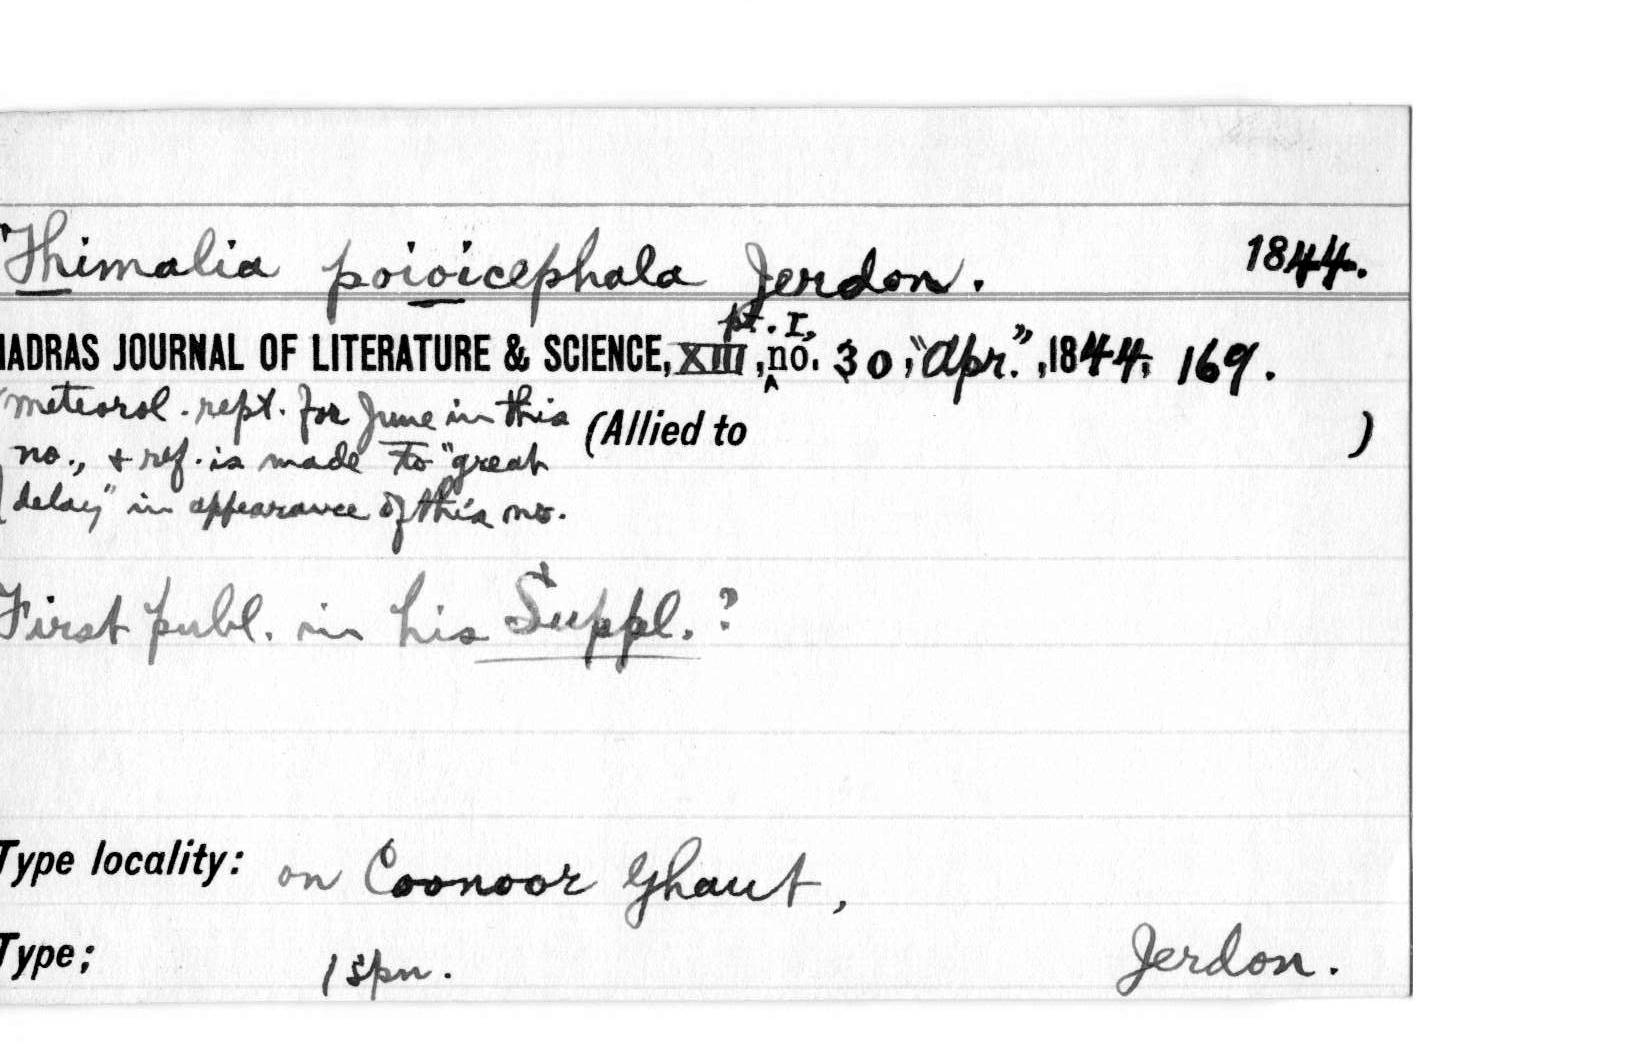 Thimalia poioicephala Jerdon. 1844.
MADRAS JOURNAL OF LITERATURE & SCIENCE, XIII, pt. I, no. 30, "Apr.", 1844, 169.
meteorol. rept. for June in this
no., & ref. is made to "great
delay" in appearance of this no.
(Allied to )
First publ. in his Suppl.?
Type locality: on Coonoor Ghaut,
Type: 1 spn. Jerdon.